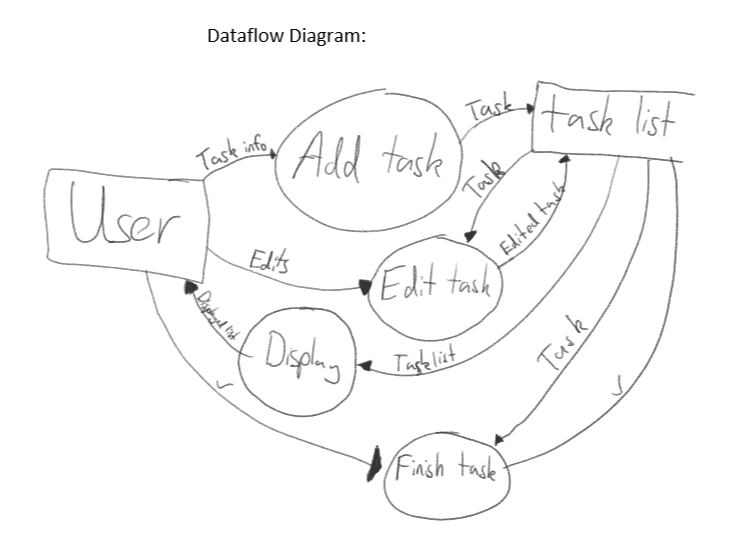 Dataflow Diagram:
Task
task list
Task info
Add task
Task
User
Edited task
Edits
Edit task
Displayed list
Display
Tasklist
Task
Finish task